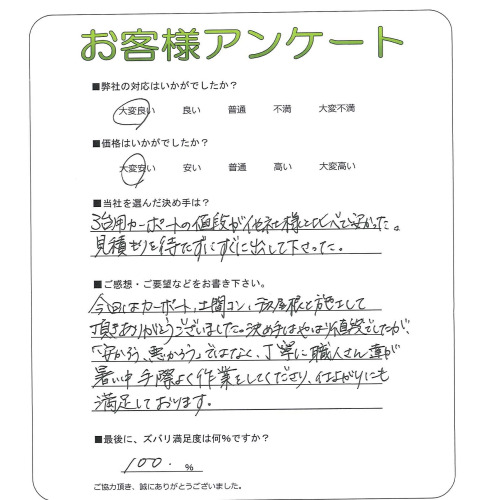 お客様アンケート
■弊社の対応はいかがでしたか？
大変良い 良い 普通 不満 大変不満
■価格はいかがでしたか？
大変安い 安い 普通 高い 大変高い
■当社を選んだ決め手は？
3台用カーポートの値段が他社様と比べて安かった。
見積もりを待たずにすぐに出して下さった。
■ご感想・ご要望などをお書き下さい。
今回はカーポート、土間コン、 屋根と施工して
頂きありがとうございました。決め手はやはり値段でしたが、
「安かろう、悪かろう」ではなく、丁寧に職人さん達が
暑い中手際よく作業をしてくださり、仕上がりにも
満足しております。
■最後に、ズバリ満足度は何％ですか？
100. %
ご協力頂き、誠にありがとうございました。